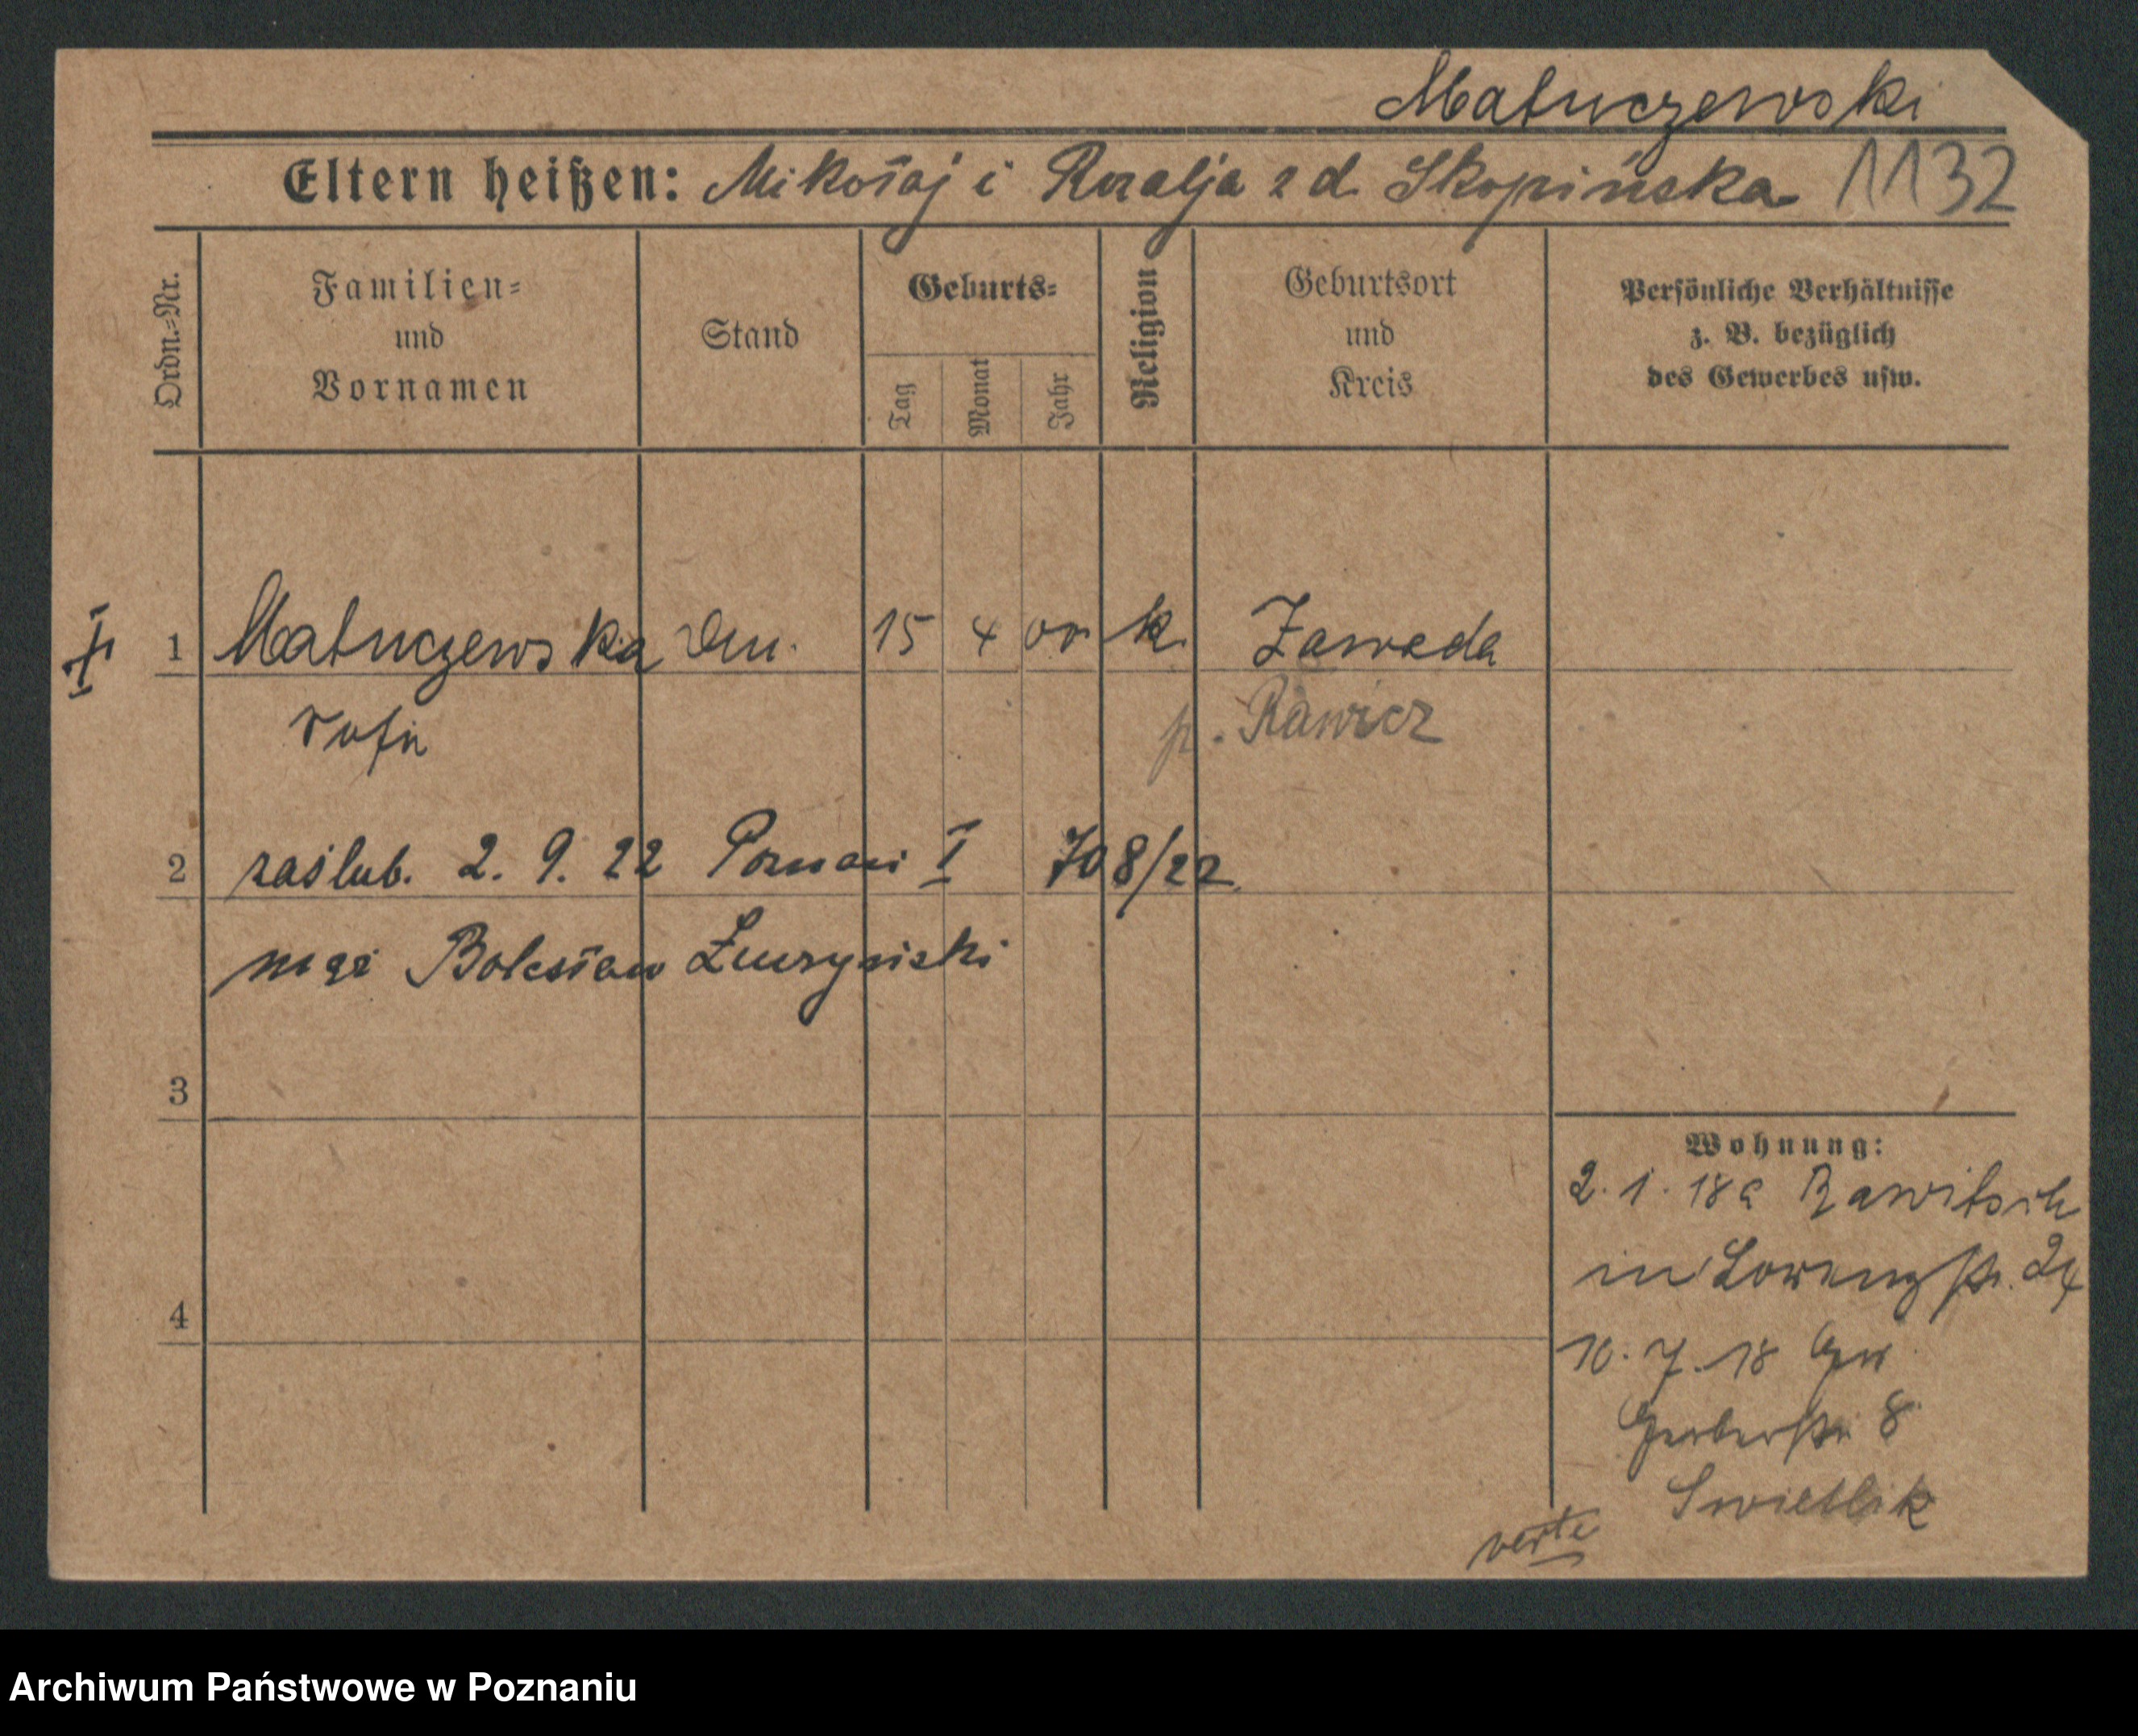 Matuczewski
Eltern heißen: Mikołaj i Rozalja z d. Skopińska 1132
Ordn.-Nr.
Familien-
und
Vornamen
Stand
Geburts-
Tag
Monat
Jahr
Religion
Geburtsort
und
Kreis
Persönliche Verhältnisse
z. B. bezüglich
des Gewerbes usw.
1 Matuczewska 15 4 00 k. Zawada
p. Rawicz
2 zaślub. 2. 9. 22 Poznań I 708/22
mąż Bolesław
3
4
Wohnung:
2. 1. 18 Rawitsch
in Lorenzstr. 24
10. 7. 18
Gerberstr. 8
Swietlik
verte
Archiwum Państwowe w Poznaniu